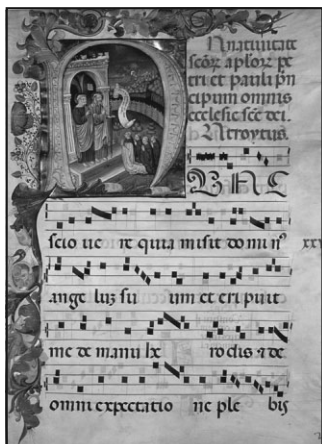 In natiuitate
scõꝝ aplõꝝ pe
tri et pauli pn
cipum omnis
ecclesie scẽ dei.
Introytus.
N V N C
scio ue re quia misit do mi nꝰ
ange luʒ su um et eri puit
me de manu he ro dis ⁊ de
omni expectatio ne ple bis